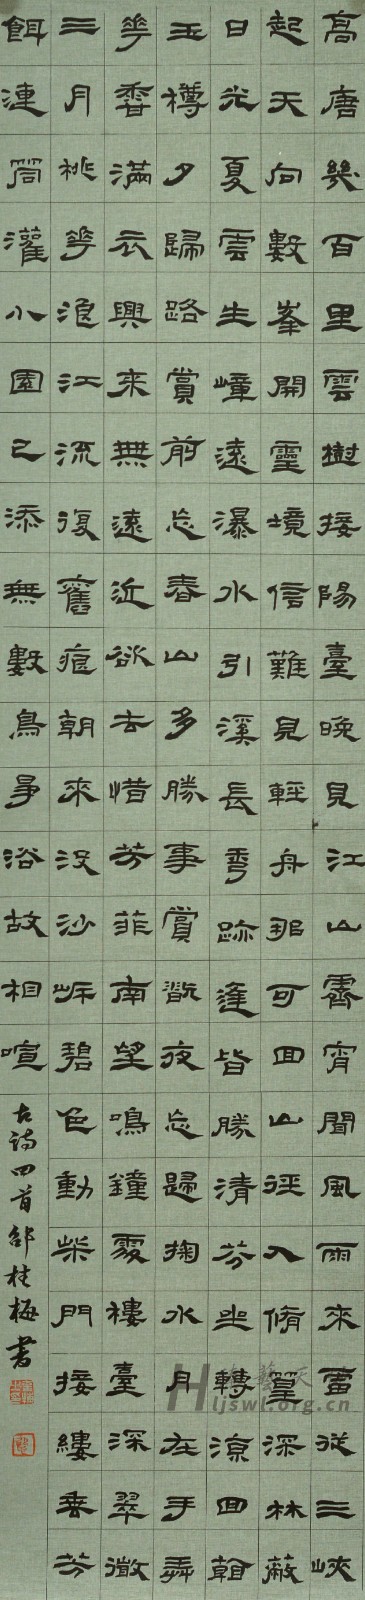 高唐幾百里雲樹接陽臺晚見江山霽宵聞風雨來雷從三峽
起天向數峯開靈境信難見輕舟那可回山徑入脩篁深林蔽
日光夏雲生嶂遠瀑水引溪長秀跡逢皆勝清芬坐轉涼回看
玉樽夕歸路賞前忘春山多勝事賞翫夜忘歸掬水月在手弄
花香滿衣興來無遠近欲去惜芳菲南望鳴鐘處樓臺深翠微
三月桃花浪江流復舊痕朝來沒沙岸碧色動柴門接縷垂芳
餌連筒灌小園已添無數鳥爭浴故相喧
古詩四首邵桂梅書
ljswl.org.cn